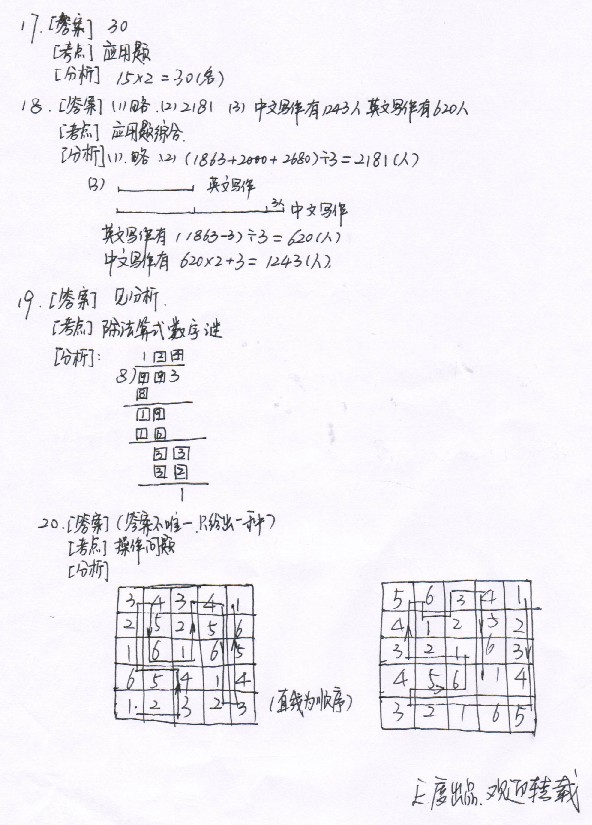 17.[答案] 30
[考点] 应用题
[分析] 15×2=30(名)
18.[答案] (1)略 (2)2181 (3) 中文写作有1243人 英文写作有620人
[考点] 应用题综合.
[分析](1).略 (2) (1863+2000+2680)÷3=2181(人)
(3) 英文写作
3人 中文写作
英文写作有 (1863-3)÷3=620(人)
中文写作有 620×2+3=1243(人).
19.[答案] 见分析.
[考点] 除法算式数字谜
[分析]:
1 2 4
8) 9 9 3
8
1 9
1 6
3 3
3 2
1
20.[答案](答案不唯一,只给出一种)
[考点] 操作问题
[分析]
3 4 3 4 1
2 5 2 5 6
1 6 1 6 5
6 5 4 1 4
1 2 3 2 3
(直线为顺序)
5 6 3 4 1
4 1 2 5 2
3 2 1 6 3
4 5 6 1 4
3 2 1 6 5
出品.欢迎转载